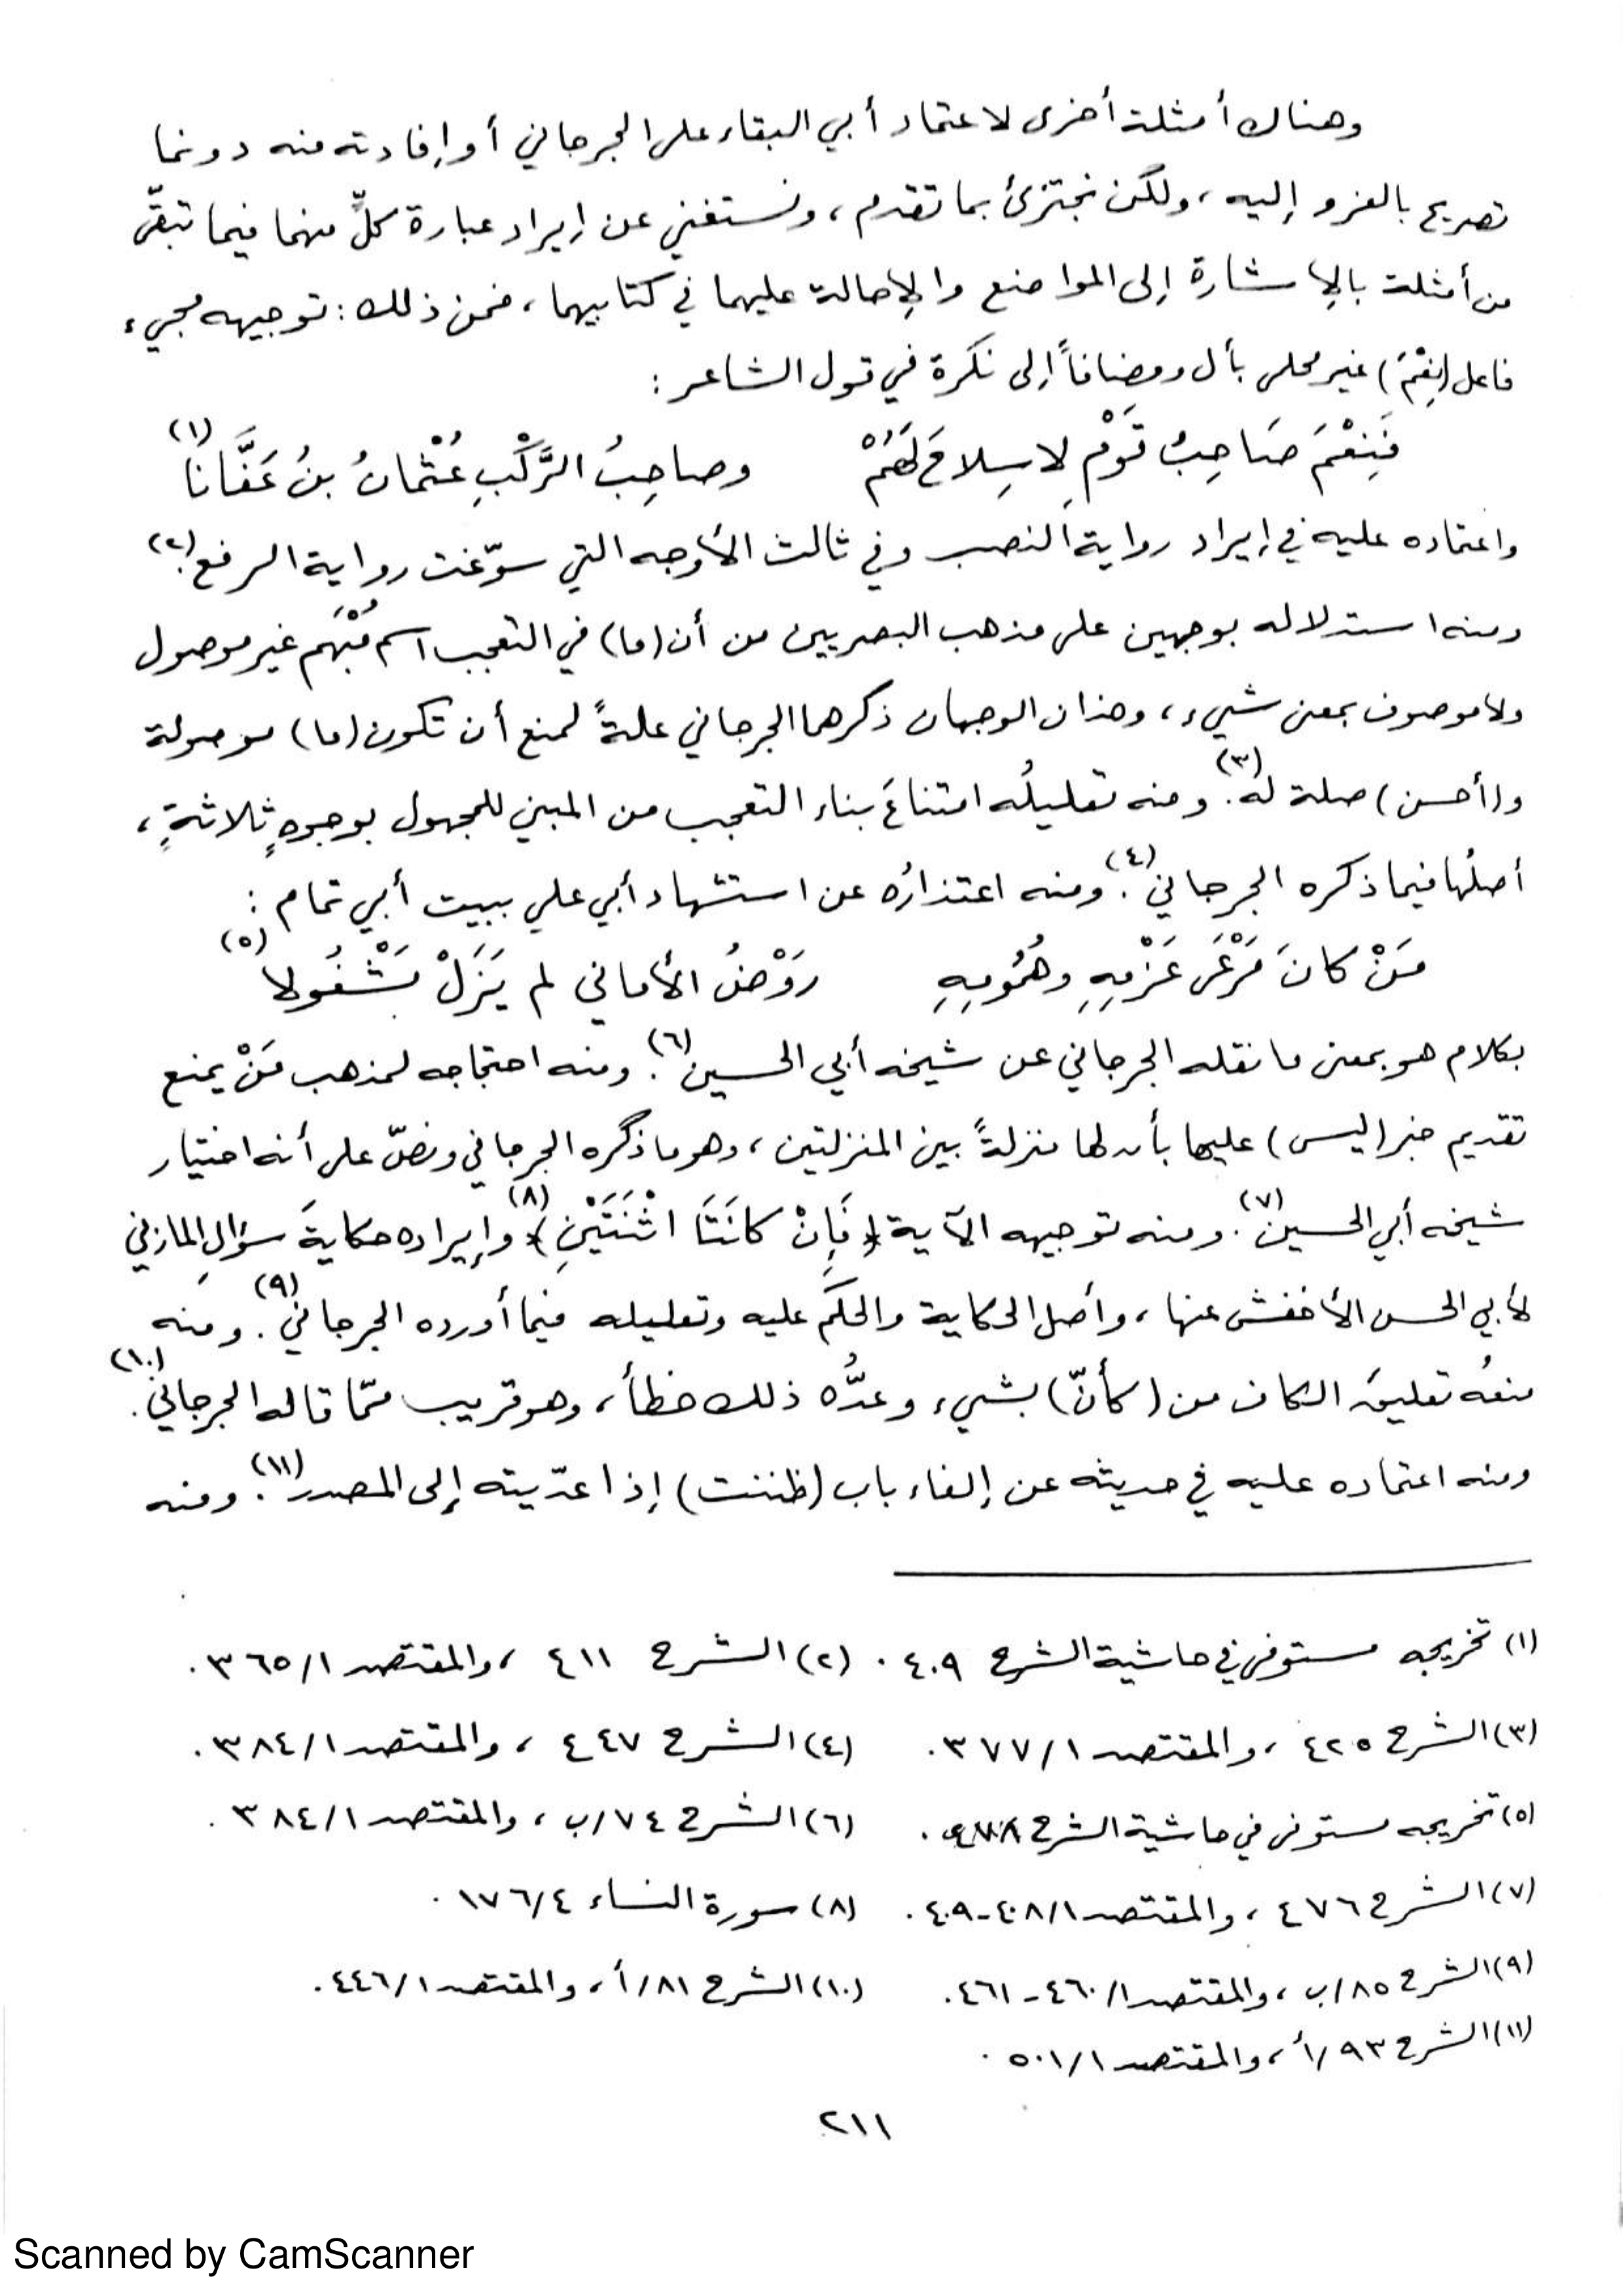 وهناك أمثلة أخرى لاعتماد أبي البقاء على الجرجاني أو إفادته منه دونما
تصريح بالعزو إليه، ولكن نجتزئ بما تقدم، ونستغني عن إيراد عبارة كلٍّ منهما فيما تبقّى
من أمثلة بالإشارة إلى المواضع والإحالة عليهما في كتابيهما، فمن ذلك: توجيهه مجيء
فاعل (نِعْمَ) غير محلى بأل ومضافاً إلى نكرة في قول الشاعر:
فَنِعْمَ صَاحِبُ قَوْمٍ لا سِلاحَ لَهُمْ وصاحِبُ الرَّكْبِ عُثْمانُ بنُ عَفَّانا (١)
واعتماده عليه في إيراد رواية النصب وفي ثالث الأوجه التي سوّغت رواية الرفع (٢).
ومنه استدلاله بوجهين على مذهب البصريين من أن (ما) في التعجب اسم مُبْهَم غير موصول
ولا موصوف بمعنى شيء، وهذان الوجهان ذكرهما الجرجاني علةً لمنع أن تكون (ما) موصولة
و(أحسن) صلة له (٣). ومنه تعليلُه امتناعَ بناء التعجب من المبني للمجهول بوجوهٍ ثلاثةٍ،
أصلُها فيما ذكره الجرجاني (٤). ومنه اعتذارُه عن استشهاد أبي علي ببيت أبي تمام:
مَنْ كانَ مَرْعَى عَزْمِهِ وهُمُومِهِ رَوْضُ الأماني لم يَزَلْ مَهْزُولا (٥)
بكلام هو بمعنى ما نقله الجرجاني عن شيخه أبي الحسين (٦). ومنه احتجاجه لمذهب مَنْ يمنع
تقديم خبر (ليس) عليها بأن لها منزلةً بين المنزلتين، وهو ما ذكره الجرجاني ونصّ على أنه اختيار
شيخه أبي الحسين (٧). ومنه توجيهه الآية ﴿فَإِنْ كانَتَا اثْنَتَيْنِ﴾ (٨) وإيراده حكايةَ سؤالِ المازني
لأبي الحسن الأخفش عنها، وأصل الحكاية والحكم عليه وتعليله فيما أورده الجرجاني (٩). ومنه
منعُه تعليقَ الكاف من (كأنّ) بشيء، وعدُّه ذلك خطأ، وهو قريب ممّا قاله الجرجاني (١٠).
ومنه اعتماده عليه في حديثه عن إلغاء باب (ظننت) إذا عدّيته إلى المصدر (١١). ومنه
(١) تخريجه مستوفى في حاشية الشرح ٤٠٩. (٢) الشرح ٤١١، والمقتصد ٣٦٥/١.
(٣) الشرح ٤٢٥، والمقتصد ٣٧٧/١. (٤) الشرح ٤٤٧، والمقتصد ٣٨٤/١.
(٥) تخريجه مستوفى في حاشية الشرح (٦) الشرح ٧٤/ب، والمقتصد ٣٨٤/١.
(٧) الشرح ٤٧٦، والمقتصد ٤٠٨/١-٤٠٩. (٨) سورة النساء ١٧٦/٤.
(٩) الشرح ٨٥/ب، والمقتصد ٤٦٠/١-٤٦١. (١٠) الشرح ٨١/أ، والمقتصد ٤٤٦/١.
(١١) الشرح ٩٣/أ، والمقتصد ٥٠١/١.
٢١١
Scanned by CamScanner